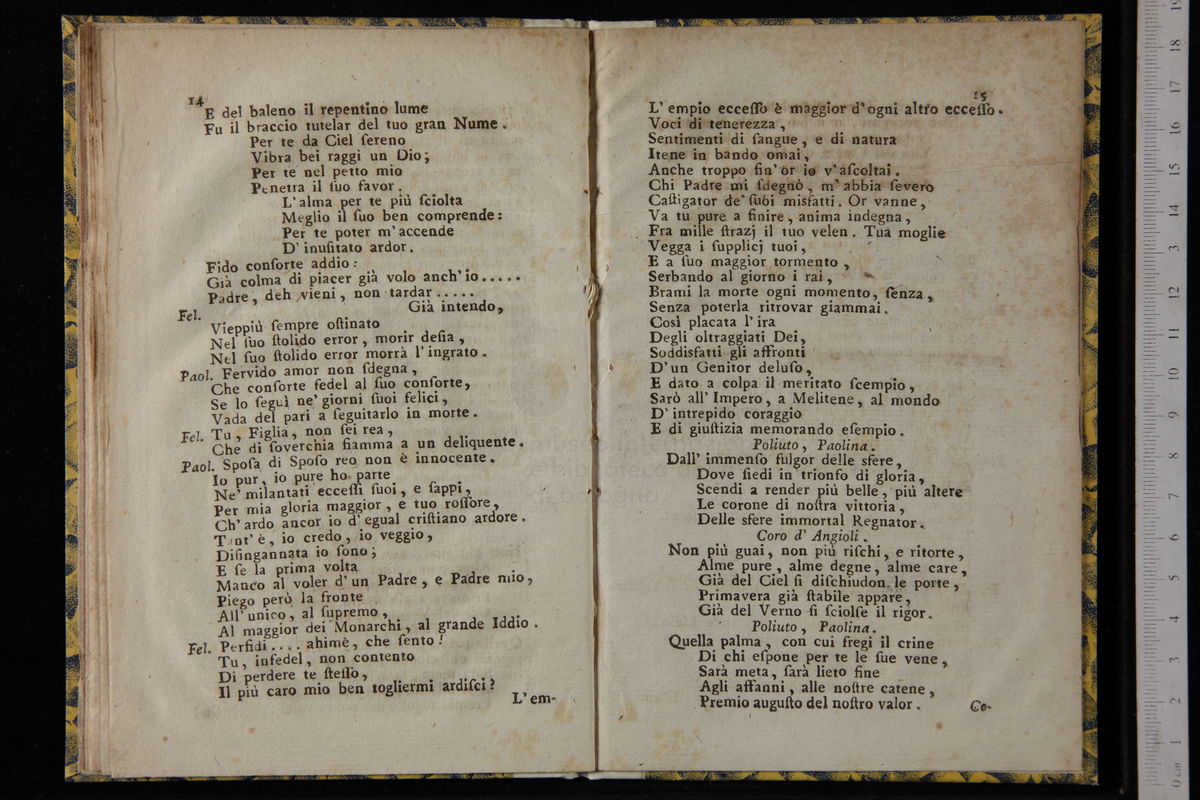 14
E del baleno il repentino lume
Fu il braccio tutelar del tuo gran Nume.
Per te da Ciel ſereno
Vibra bei raggi un Dio;
Per te nel petto mio
Penetra il ſuo favor.
L'alma per te più ſciolta
Meglio il ſuo ben comprende:
Per te poter m'accende
D'inuſitato ardor.
Fido conſorte addio:
Già colma di piacer già volo anch'io.....
Padre, deh vieni, non tardar.....
Fel. Già intendo,
Vieppiù ſempre oſtinato
Nel ſuo ſtolido error, morir deſia,
Nel ſuo ſtolido error morrà l'ingrato.
Paol. Fervido amor non ſdegna,
Che conſorte fedel al ſuo conſorte,
Se lo ſeguì ne' giorni ſuoi felici,
Vada del pari a ſeguitarlo in morte.
Fel. Tu, Figlia, non ſei rea,
Che di ſoverchia fiamma a un deliquente.
Paol. Spoſa di Spoſo reo non è innocente.
Io pur, io pure ho parte
Ne' milantati ecceſſi ſuoi, e ſappi,
Per mia gloria maggior, e tuo roſſore,
Ch'ardo ancor io d'egual criſtiano ardore.
Tant'è, io credo, io veggio,
Diſingannata io ſono;
E ſe la prima volta
Manco al voler d'un Padre, e Padre mio,
Piego però la fronte
All'unico, al ſupremo,
Al maggior dei Monarchi, al grande Iddio.
Fel. Perfidi.... ahimè, che ſento!
Tu, infedel, non contento
Di perdere te ſteſſo,
Il più caro mio ben togliermi ardiſci?
L'em-
15
L'empio ecceſſo è maggior d'ogni altro ecceſſo.
Voci di tenerezza,
Sentimenti di ſangue, e di natura
Itene in bando omai,
Anche troppo fin'or io v'aſcoltai.
Chi Padre mi ſdegnò, m'abbia ſevero
Caſtigator de' ſuoi misfatti. Or vanne,
Va tu pure a finire, anima indegna,
Fra mille ſtrazj il tuo velen. Tua moglie
Vegga i ſupplicj tuoi,
E a ſuo maggior tormento,
Serbando al giorno i rai,
Brami la morte ogni momento, ſenza,
Senza poterla ritrovar giammai.
Così placata l'ira
Degli oltraggiati Dei,
Soddisfatti gli affronti
D'un Genitor deluſo,
E dato a colpa il meritato ſcempio,
Sarò all'Impero, a Melitene, al mondo
D'intrepido coraggio
E di giuſtizia memorando eſempio.
Poliuto, Paolina.
Dall'immenſo fulgor delle sfere,
Dove ſiedi in trionfo di gloria,
Scendi a render più belle, più altere
Le corone di noſtra vittoria,
Delle sfere immortal Regnator.
Coro d'Angioli.
Non più guai, non più riſchi, e ritorte,
Alme pure, alme degne, alme care,
Già del Ciel ſi diſchiudon le porte,
Primavera già ſtabile appare,
Già del Verno ſi ſciolſe il rigor.
Poliuto, Paolina.
Quella palma, con cui fregi il crine
Di chi eſpone per te le ſue vene,
Sarà meta, ſarà lieto fine
Agli affanni, alle noſtre catene,
Premio auguſto del noſtro valor.
Co-
0 cm 1 2 3 4 5 6 7 8 9 10 11 12 13 14 15 16 17 18 19